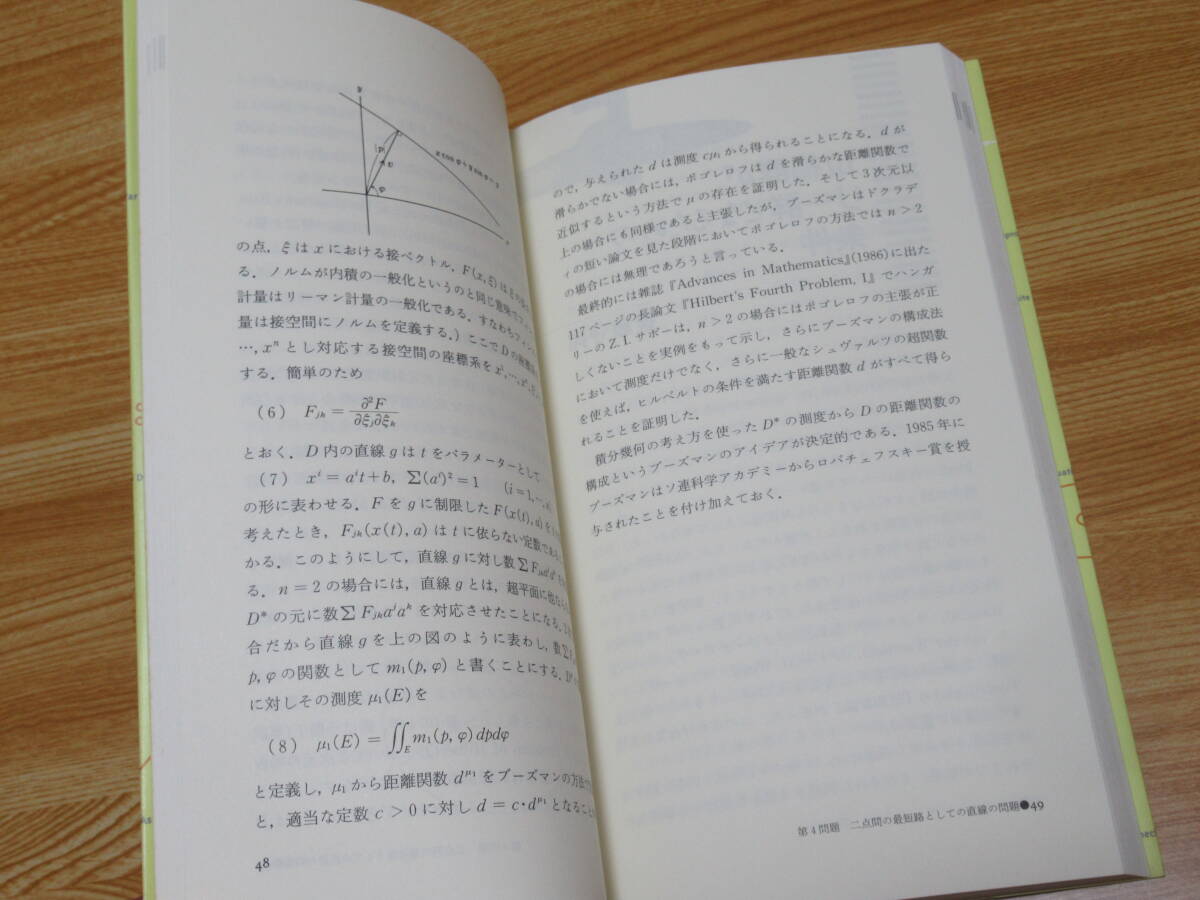 y
|p|
φ
の点，ξ は x における接ベクトル，F(x,ξ)は
る．ノルムが内積の一般化というのと同じ意味でフィン
計量はリーマン計量の一般化である．すなわちフィン
量は接空間にノルムを定義する．）ここで D の座標
…, xⁿ とし対応する接空間の座標系を
する．簡単のため
(6) F_{jk} = ∂²F / ∂ξ_j∂ξ_k
とおく．D 内の直線 g は t をパラメーターとして
(7) xⁱ = aⁱt + b, Σ(aⁱ)² = 1 (i = 1, …, n)
の形に表わせる．F を g に制限した F(x(t), a) を
考えたとき，F_{jk}(x(t), a) は t に依らない定数である
かる．このようにして，直線 g に対し数 Σ F_{jk}aʲaᵏ
る．n = 2 の場合には，直線 g とは，超平面に他なら
D* の元に数 Σ F_{jk}aʲaᵏ を対応させたことになる．
合だから直線 g を上の図のように表わし，数 Σ
p, φ の関数として m₁(p, φ) と書くことにする．
に対しその測度 μ₁(E) を
(8) μ₁(E) = ∬_E m₁(p, φ) dpdφ
と定義し，μ₁ から距離関数 d^{μ₁} をブーズマンの方法で
と，適当な定数 c > 0 に対し d = c・d^{μ₁} となること
48
ので，与えられた d は測度 cμ₁ から得られることになる．d が
滑らかでない場合には，ポゴレロフは d を滑らかな距離関数で
近似するという方法で μ の存在を証明した．そして 3 次元以
上の場合にも同様であると主張したが，ブーズマンはドクラデ
ィの短い論文を見た段階においてポゴレロフの方法では n > 2
の場合には無理であろうと言っている．
最終的には雑誌『Advances in Mathematics』(1986)に出た
117 ページの長論文『Hilbert's Fourth Problem, I』でハンガ
リーの Z. I. サボーは，n > 2 の場合にはポゴレロフの主張が正
しくないことを実例をもって示し，さらにブーズマンの構成法
において測度だけでなく，さらに一般なシュヴァルツの超関数
を使えば，ヒルベルトの条件を満たす距離関数 d がすべて得ら
れることを証明した．
積分幾何の考え方を使った D* の測度から D の距離関数の
構成というブーズマンのアイデアが決定的である．1985 年に
ブーズマンはソ連科学アカデミーからロバチェフスキー賞を授
与されたことを付け加えておく．
第 4 問題 二点間の最短路としての直線の問題●49